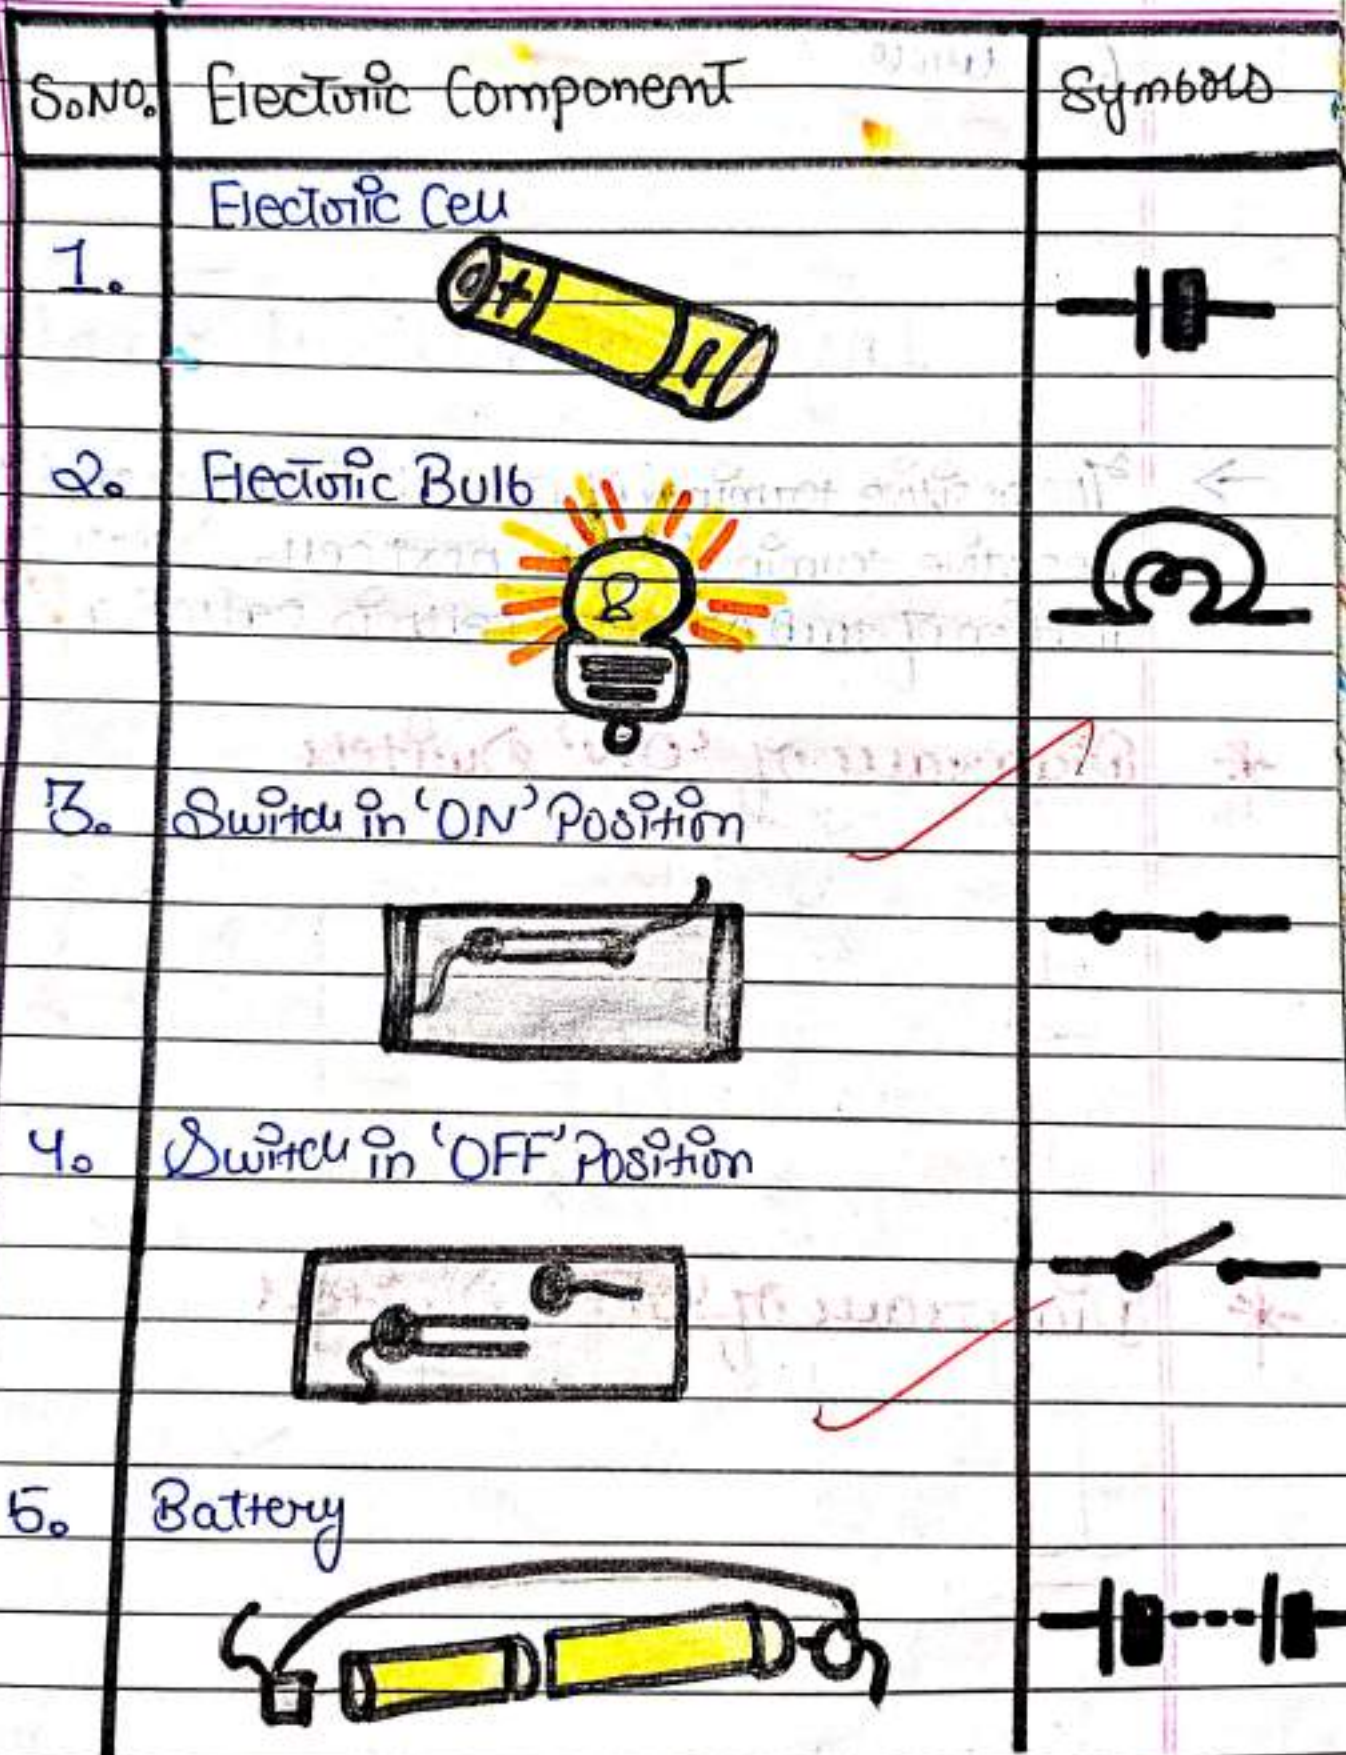 S.NO. Electric Component Symbols
Electric Cell
1.
+ -
2. Electric Bulb
3. Switch in 'ON' Position
4. Switch in 'OFF' Position
5. Battery